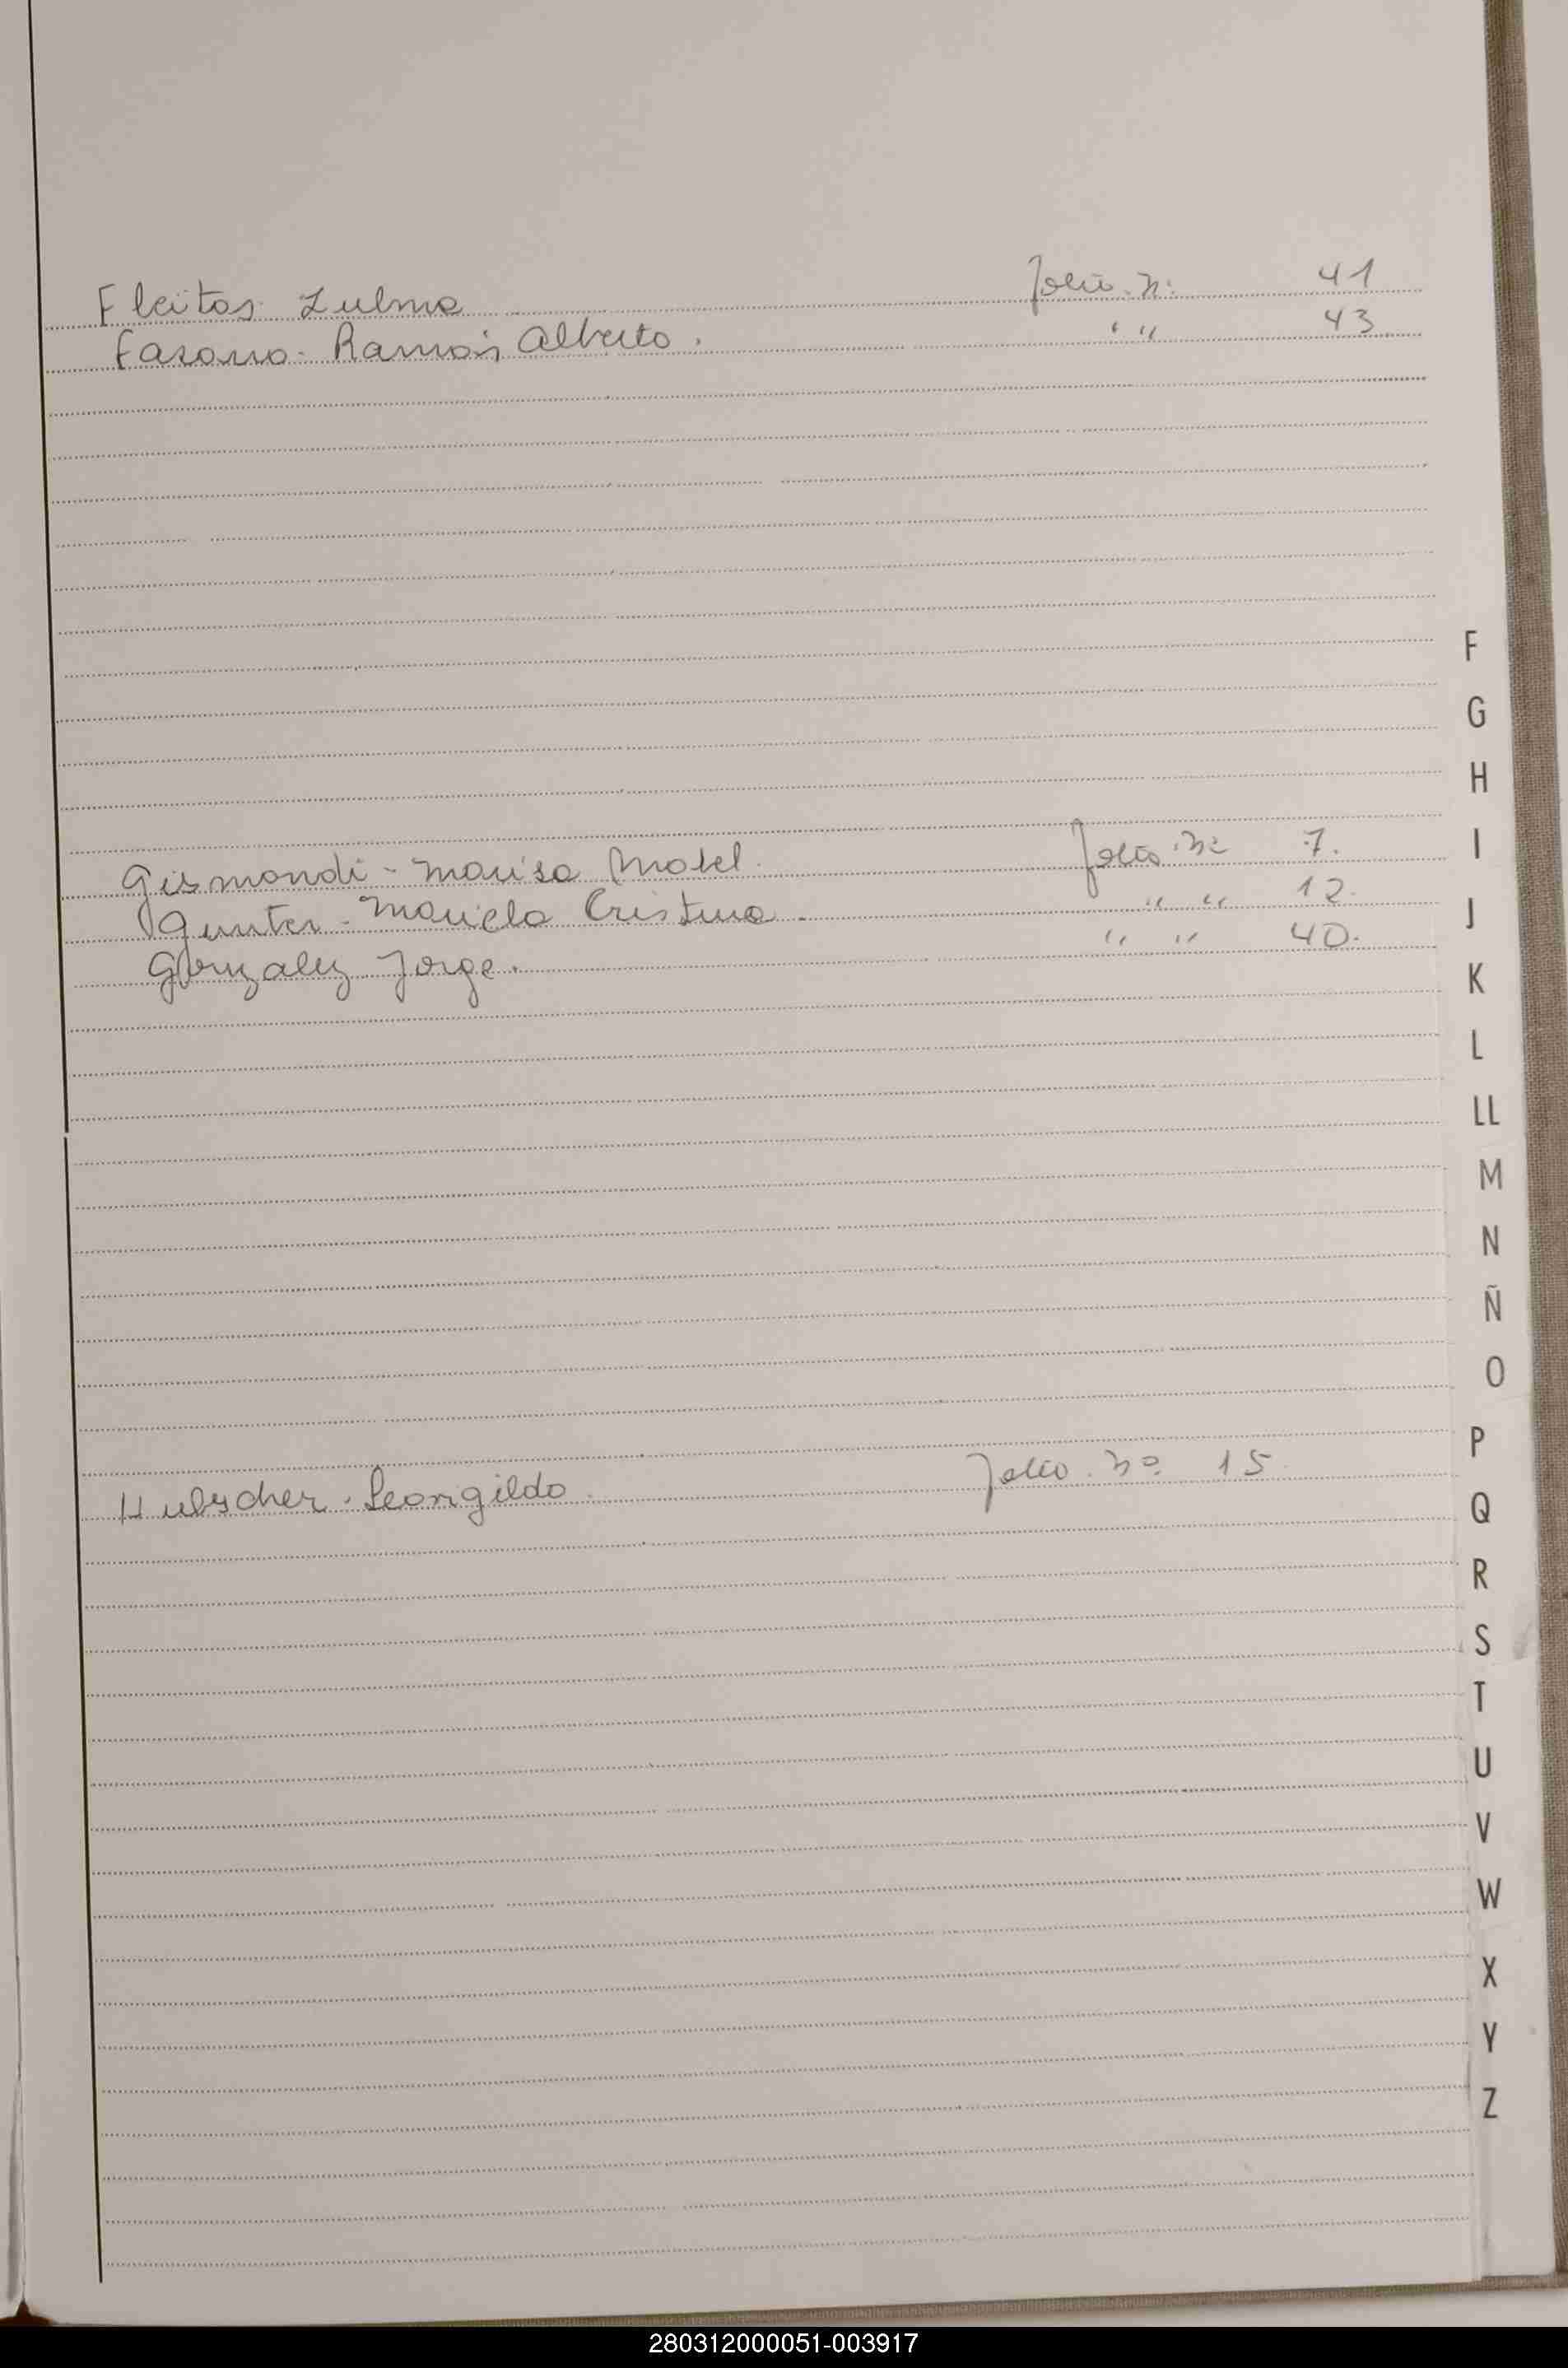 Fleitas Zulma Folio. n: 41
Fasano. Ramón Alberto. " " 43
F
G
H
Gismondi - Marisa Mabel. Folio Nº 7.
I
Gunter - Mariela Cristina. " " 12.
J
Gonzalez Jorge. " " 40.
K
L
LL
M
N
Ñ
O
P
Hubscher. Leongildo. Folio. Nº 15.
Q
R
S
T
U
V
W
X
Y
Z
280312000051-003917